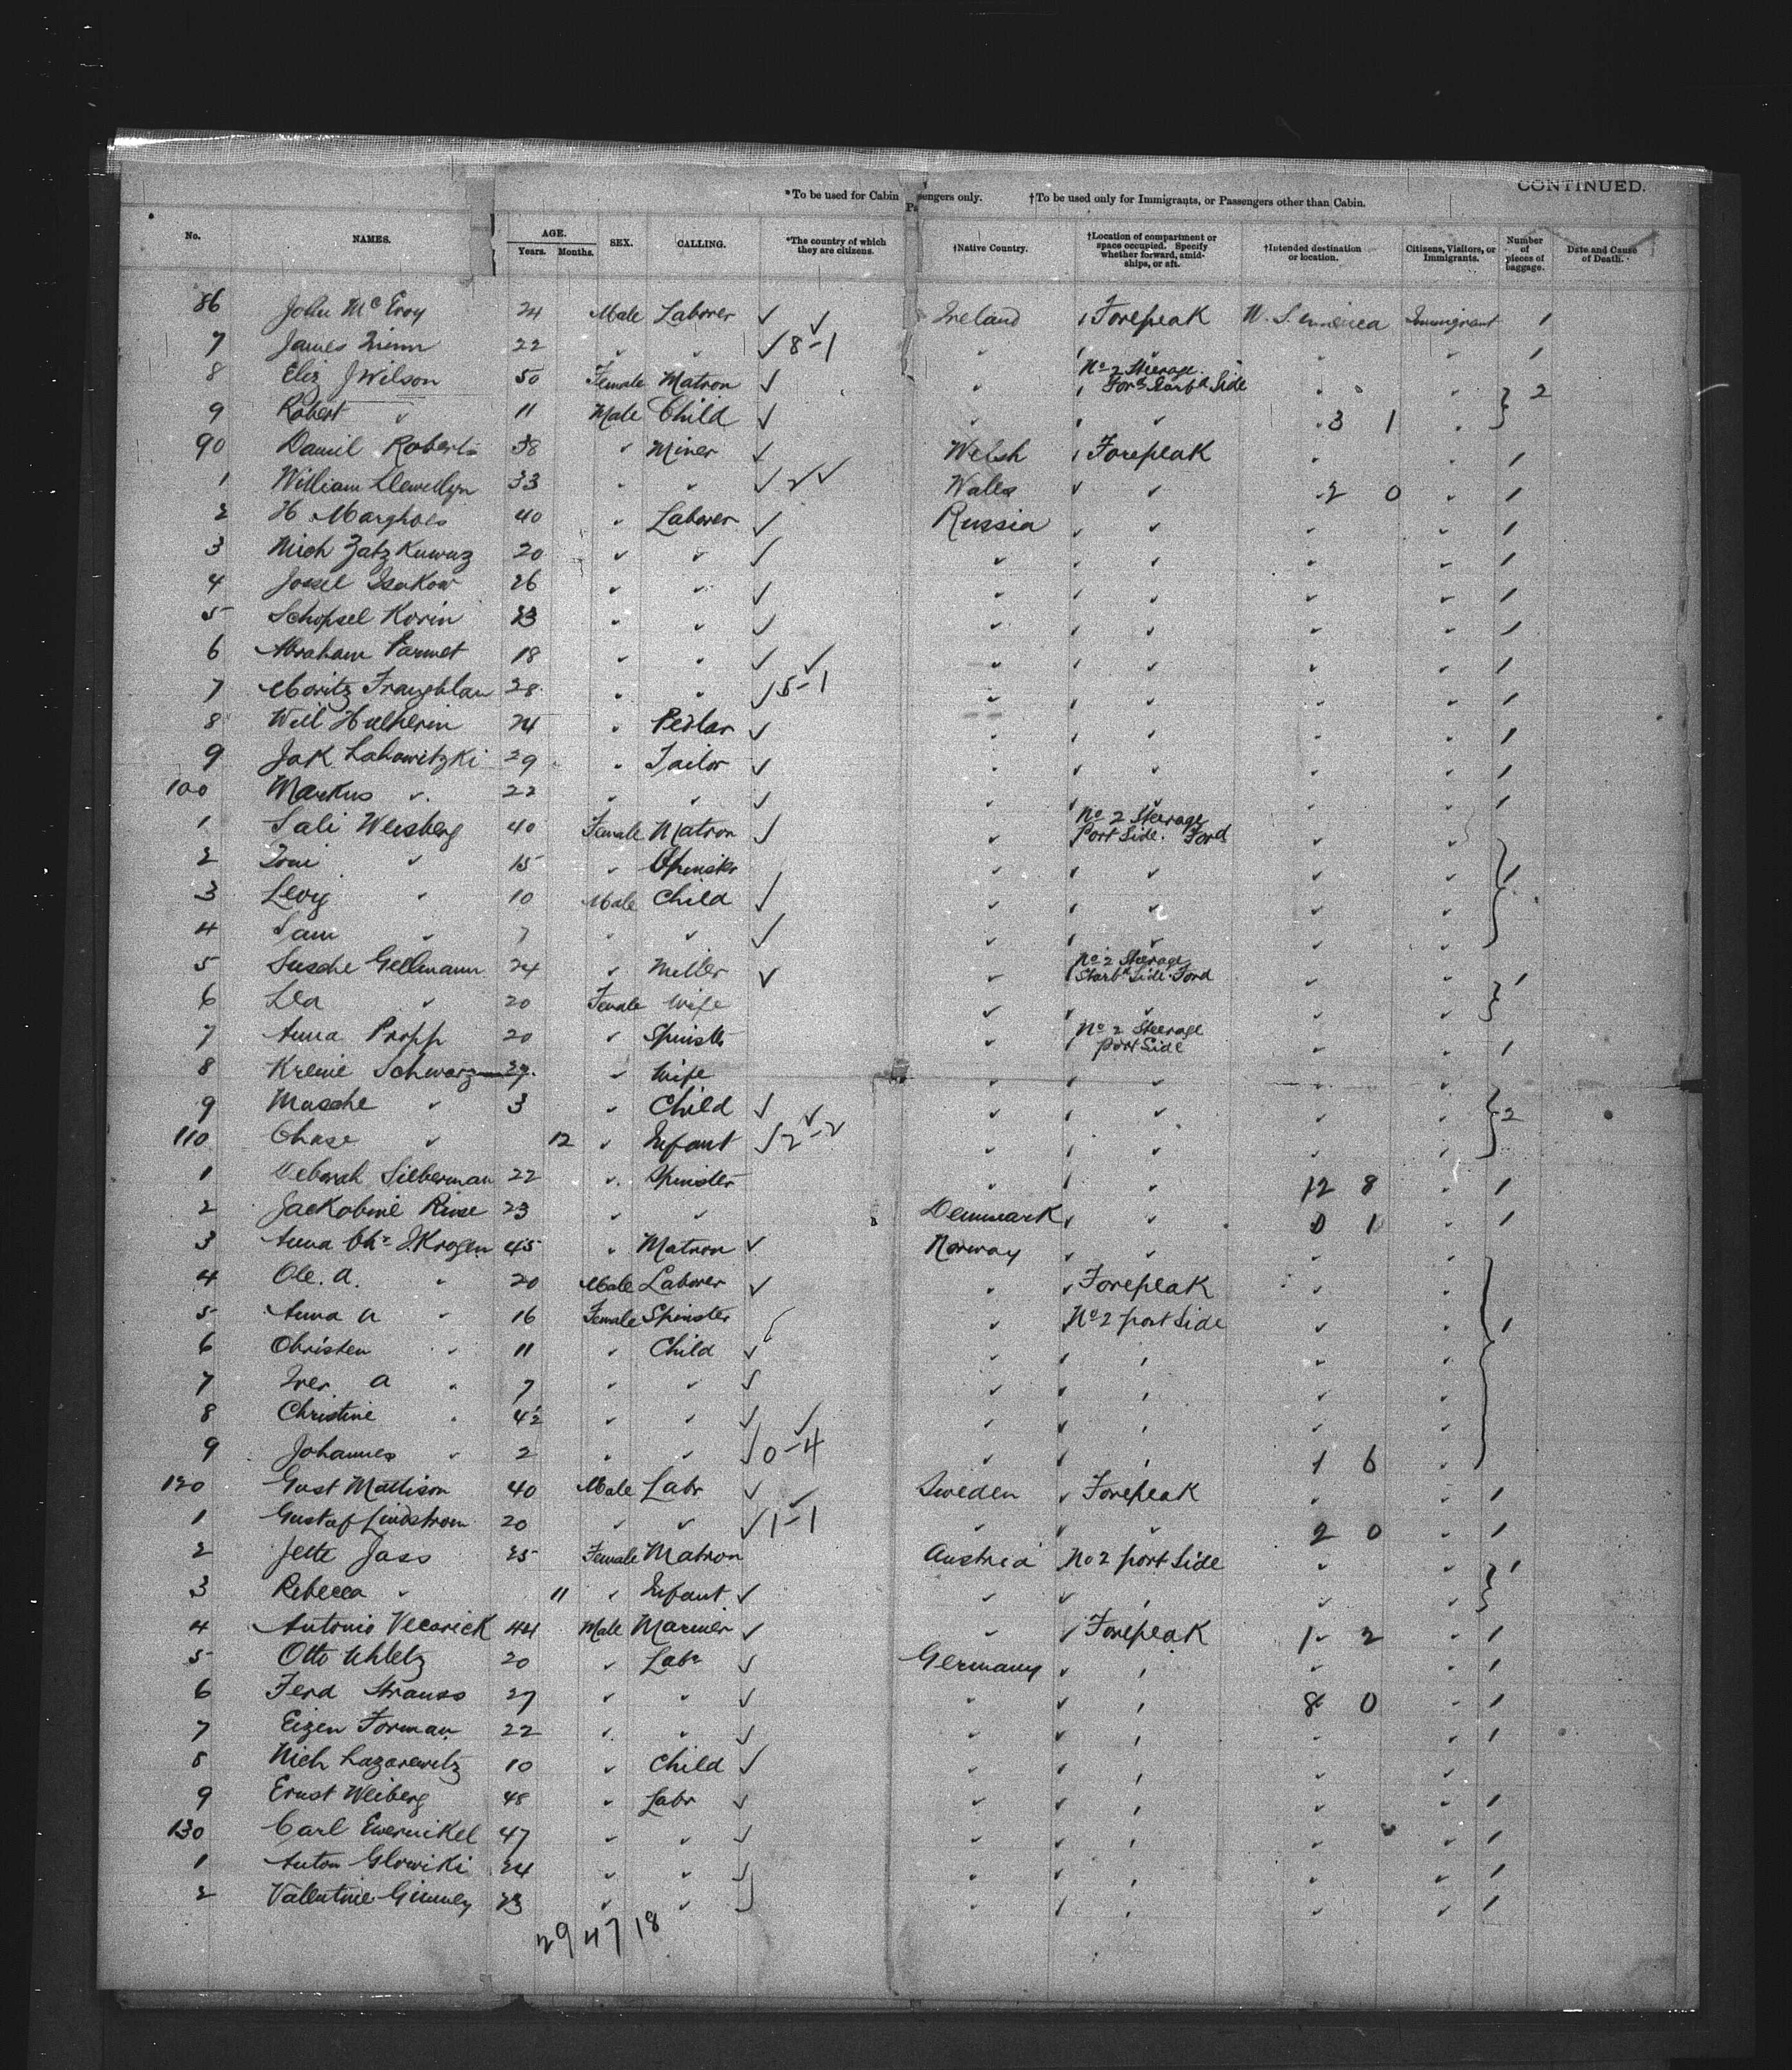 CONTINUED.
*To be used for Cabin Passengers only. †To be used only for Immigrants, or Passengers other than Cabin.
No. NAMES. AGE. Years. Months. SEX. CALLING. *The country of which they are citizens. †Native Country. †Location of compartment or space occupied. Specify whether forward, amidships, or aft. †Intended destination or location. Citizens, Visitors, or Immigrants. Number of pieces of baggage. Date and Cause of Death.
86 John McEvoy 24 Male Laborer ✓ ✓ Ireland Forepeak U. S. America Immigrant 1
7 James 22 ✓ 8-1 1
8 Eliz J Wilson 50 Female Matron ✓ No 2 Steerage Ford Starbd Side 2
9 Robert 11 Male Child ✓ 3 1
90 Daniel Roberts 38 Miner ✓ Welsh Forepeak 1
1 William Llewellyn 33 ✓ 2 ✓ Wales 2 0 1
2 H Marghoes 40 Laborer ✓ Russia 1
3 Mich 20 ✓ 1
4 Jossel Isakow 26 ✓ 1
5 Schopsel Korin 23 ✓ 1
6 Abraham Parmet 18 ✓ ✓ 1
7 Moritz 28 ✓ 5-1 1
8 24 Pedlar ✓ 1
9 Jak Lahowitzki 29 Tailor ✓ 1
100 Markus 22 ✓ 1
1 Sali Weisberg 40 Female Matron ✓ No 2 Steerage Port Side. Ford
2 15 Spinster 1
3 Levy 10 Male Child ✓
4 Sam 7 ✓
5 Susche Gellmann 24 Miller ✓ No 2 Steerage Starbd Side Ford 1
6 Lea 20 Female Wife
7 Anna Propp 20 Spinster No 2 Steerage port Side 1
8 Kreine Schwarz Wife
9 Musche 3 Child ✓ ✓ 2
110 Chase 12 Infant ✓ 2-2
1 Deborah Sieberman 22 Spinster 12 8 1
2 Jackobine Riise 23 Denmark 0 1 1
3 Anna J. Krogen 45 Matron ✓ Norway
4 Ole. A. 20 Male Laborer ✓ Forepeak
5 Anna A 16 Female Spinster No 2 port Side 1
6 Christen 11 Child ✓
7 Iver A 7 ✓
8 Christine 4½ ✓ ✓
9 Johannes 2 ✓ 0-4 1 6
120 Gust Mattison 40 Male Labr ✓ ✓ Sweden Forepeak 1
1 Gustaf Lindstrom 20 ✓ 1-1 2 0 1
2 Jette Jass 25 Female Matron Austria No 2 port Side 1
3 Rebecca 11 Infant ✓
4 Antonio 44 Male Mariner ✓ Forepeak 1 2 1
5 Otto 20 Labr ✓ Germany 1
6 Ferd Strauss 27 ✓ 8 0 1
7 Eizen Forman 22 ✓ 1
8 Mich Lazarewitz 10 Child ✓
9 Ernst Weiberg 48 Labr ✓ 1
130 Carl Ewernikel 47 ✓ 1
1 Anton Glowiki 24 ✓ 1
2 Valentine 23 ✓ 1
29 47 18